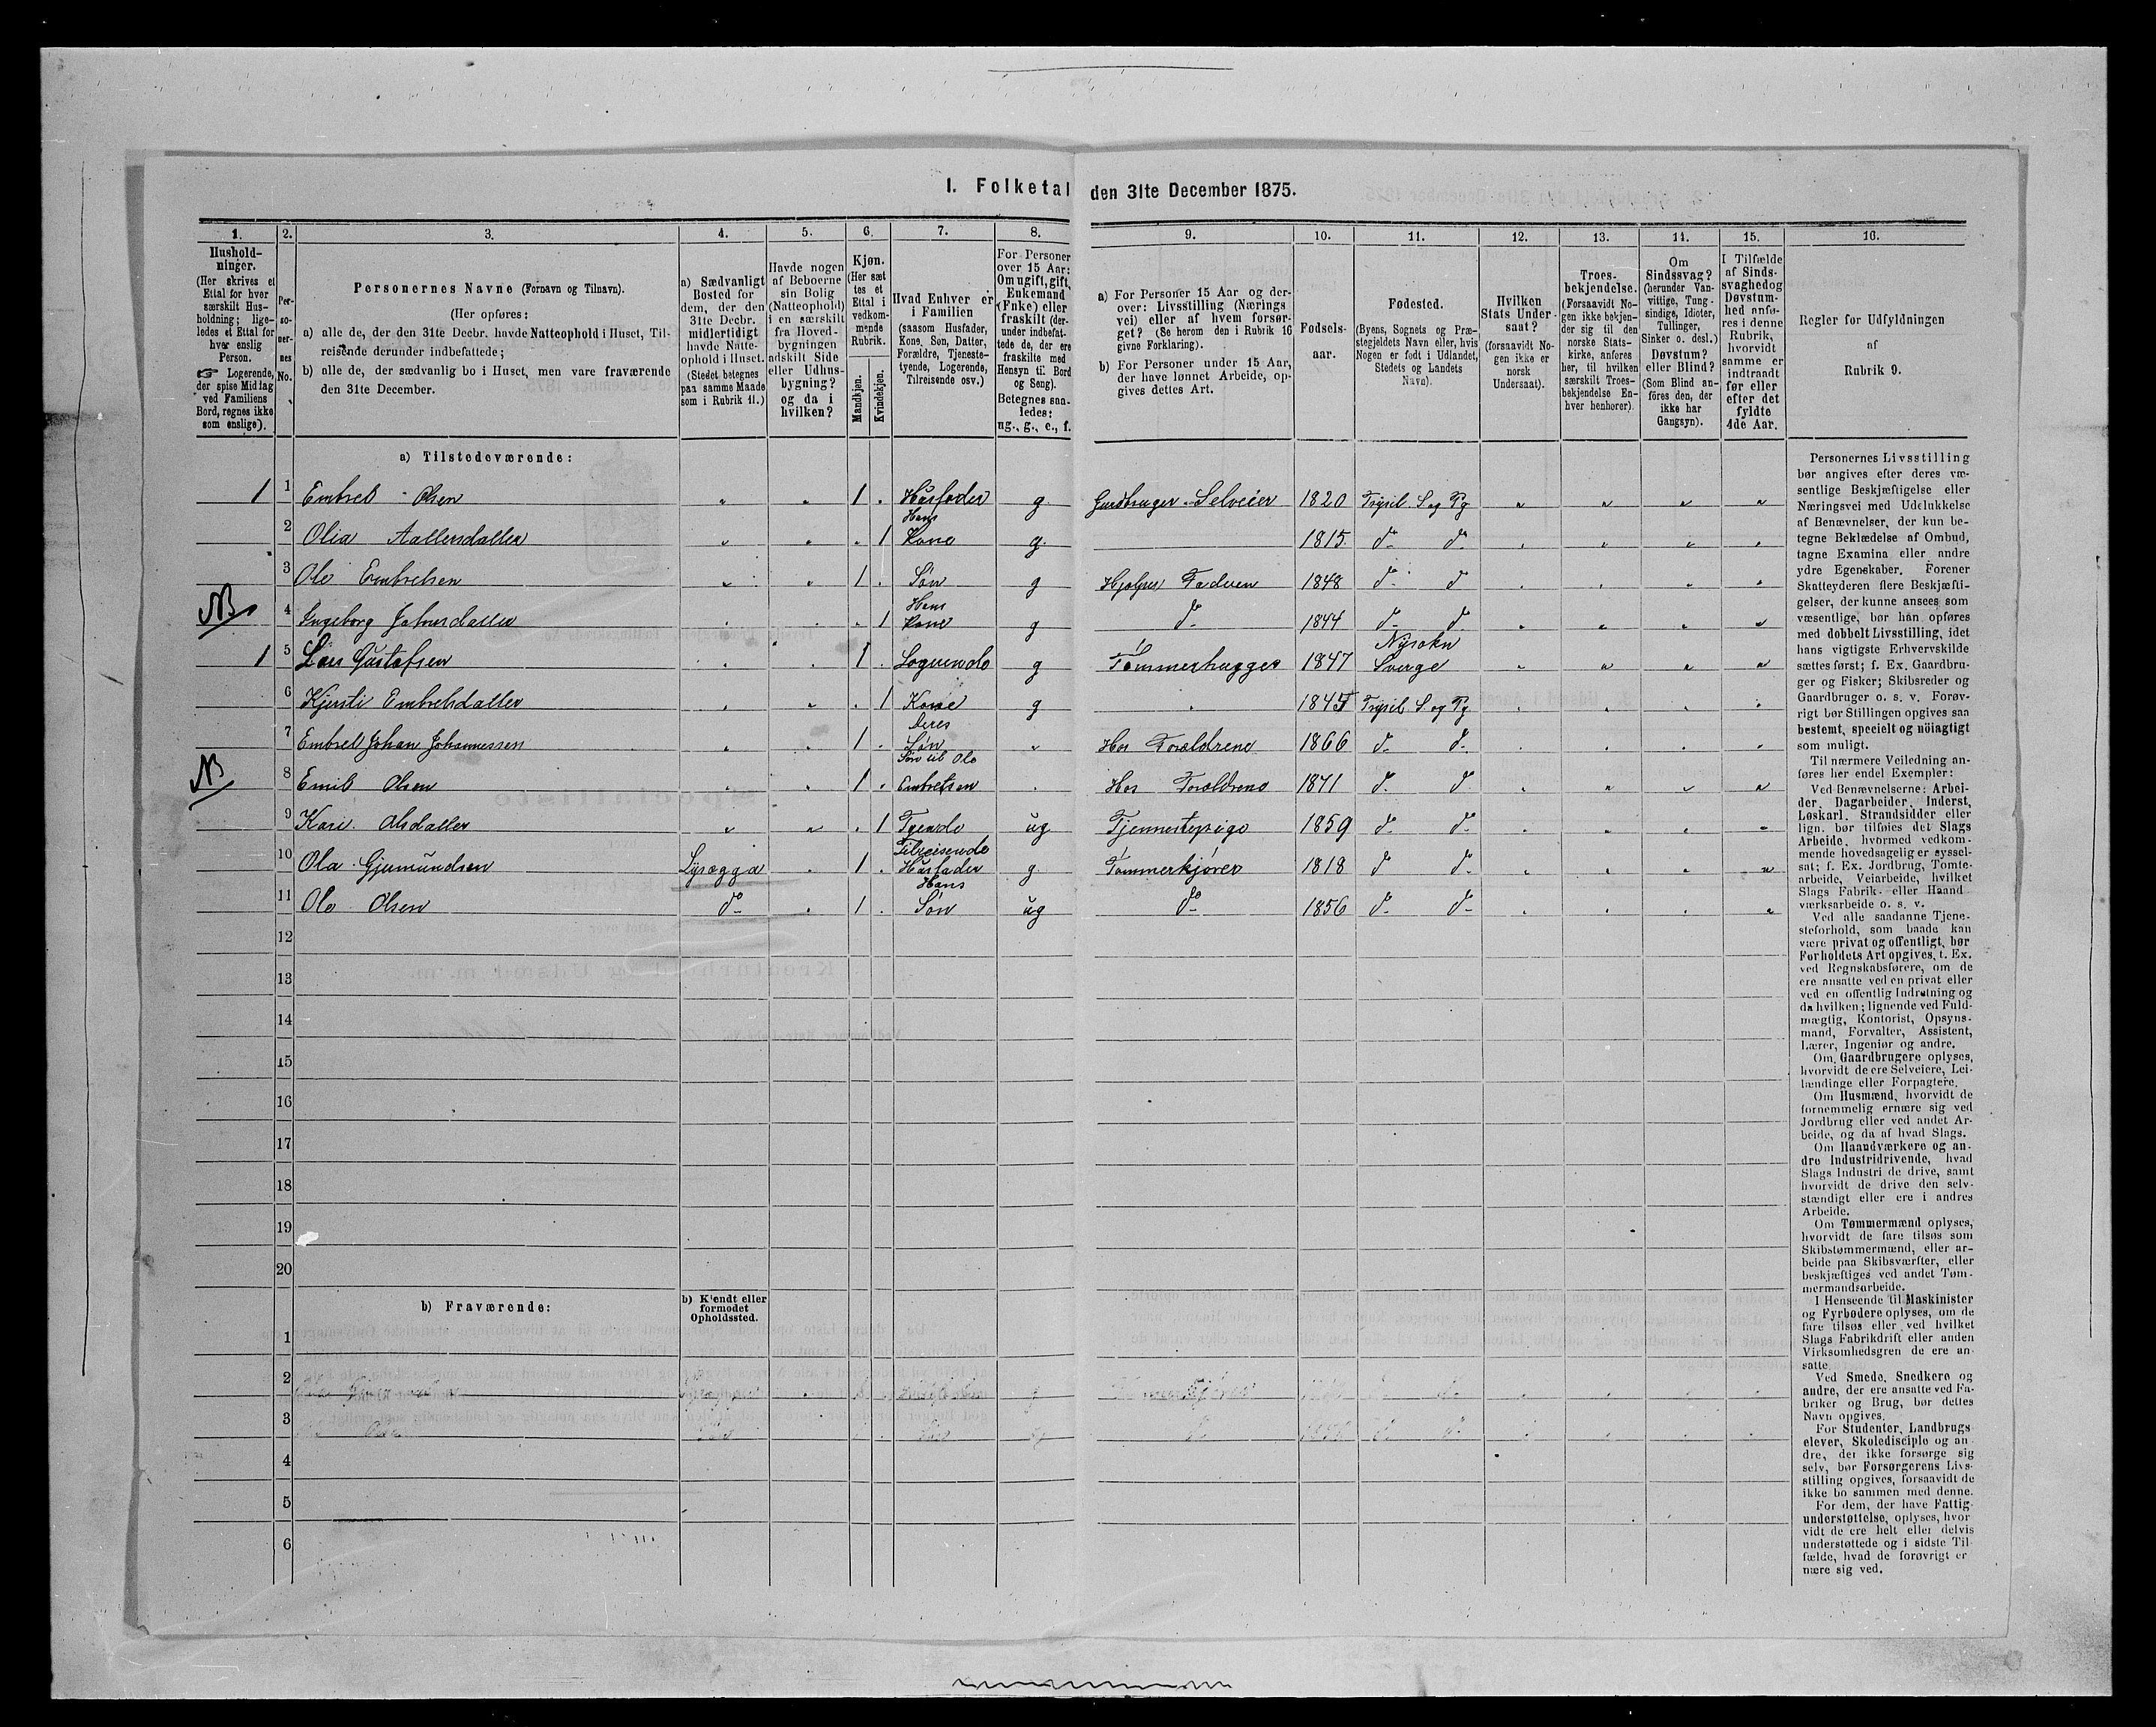 I. Folketal den 31te December 1875.
1.
Hushold-
ninger.
(Her skrives et
Ettal for hver
særskilt Hus-
holdning; lige-
ledes et Ettal for
hver enslig
Person.
☞ Logerende,
der spise Middag
ved Familiens
Bord, regnes ikke
som enslige).
2.
Per-
so-
ner-
nes
No.
3.
Personernes Navne (Fornavn og Tilnavn).
(Her opføres:
a) alle de, der den 31te Decbr. havde Natteophold i Huset, Til-
reisende derunder indbefattede;
b) alle de, der sædvanlig bo i Huset, men vare fraværende
den 31te December.
4.
a) Sædvanligt
Bosted for
dem, der den
31te Decbr.
midlertidigt
havde Natte-
ophold i Huset.
(Stedet betegnes
paa samme Maade
som i Rubrik 11.)
5.
Havde nogen
af Beboerne
sin Bolig
(Natteophold)
i en særskilt
fra Hoved-
bygningen
adskilt Side
eller Udhus-
bygning?
og da i
hvilken?
6.
Kjøn.
(Her sæt
tes et
Ettal i
vedkom-
mende
Rubrik.
Mandkjøn.
Kvindekjøn.
7.
Hvad Enhver er
i Familien
(saasom Husfader,
Kone, Søn, Datter,
Forældre, Tjeneste-
tyende, Logerende,
Tilreisende osv.)
8.
For Personer
over 15 Aar:
Om ugift, gift,
Enkemand
(Enke) eller
fraskilt (der-
under indbefat-
tede de, der ere
fraskilte med
Hensyn til Bord
og Seng).
Betegnes saa-
ledes:
ug., g., e., f.
9.
a) For Personer 15 Aar og der-
over: Livsstilling (Nærings
vei) eller af hvem forsør-
get? (Se herom den i Rubrik 16
givne Forklaring).
b) For Personer under 15 Aar,
der have lønnet Arbeide, op-
gives dettes Art.
10.
Fødsels-
aar.
11.
Fødested.
(Byens, Sognets og Præ-
stegjeldets Navn eller, hvis
Nogen er født i Udlandet,
Stedets og Landets
Navn).
12.
Hvilken
Stats Under-
saat?
(forsaavidt No-
gen ikke er
norsk
Undersaat).
13.
Troes-
bekjendelse.
(Forsaavidt No-
gen ikke bekjen-
der sig til den
norske Stats-
kirke, anføres
her, til hvilken
særskilt Troes-
bekjendelse En-
hver henhører).
14.
Om
Sindssvag?
(herunder Van-
vittige, Tung-
sindige, Idioter,
Tullinger,
Sinker o. desl.)
Døvstum?
eller Blind?
(Som Blind an-
föres den, der
ikke har
Gangsyn).
15.
I Tilfælde
af Sinds-
svaghed og
Døvstum-
hed anfø-
res i denne
Rubrik,
hvorvidt
samme er
indtraadt
før eller
efter det
fyldte
4de Aar.
16.
Regler for Udfyldningen
af
Rubrik 9.
a) Tilstedeværende:
1 1 Embret Olsen 1 Husfader g Gardbruger Selveier 1820 Trysil S og Pg
2 Olia 1 Hans Kone g 1815 do do
3 Ole Embretsen 1 Søn g Hjelper Faderen 1848 do do
NB 4 Ingeborg Johnsdatter 1 Hans Kone g do 1844 do do
1 5 Lars Gustafsen 1 Logerende g Tømmerhugger 1847 Nysokn Sverge
6 Kjersti Embretsdatter 1 Kone g 1845 Trysil S og Pg
7 Embret Johan Johannessen 1 Deres Søn Hos Forældrene 1866 do do
NB 8 Emil Olsen 1 Søn til Ole Embretsen Hos Forældrene 1871 do do
9 Kari Olsdatter 1 Tyende ug Tjennestepige 1859 do do
10 Ola Gjermundsen Lysægga 1 Tilreisende Husfader g Tømmerkjører 1818 do do
11 Ole Olsen do 1 Hans Søn ug do 1856 do do
12
13
14
15
16
17
18
19
20
b) Fraværende:
b) Kjendt eller
formodet
Opholdssted.
1
2
3
4
5
6
Personernes Livsstilling
bør angives efter deres væ-
sentlige Beskjæftigelse eller
Næringsvei med Udelukkelse
af Benævnelser, der kun be-
tegne Beklædelse af Ombud,
tagne Examina eller andre
ydre Egenskaber. Forener
Skatteyderen flere Beskjæfti-
gelser, der kunne ansees som
væsentlige, bør han opføres
med dobbelt Livsstilling, idet
hans vigtigste Erhvervskilde
sættes først; f. Ex. Gaardbru-
ger og Fisker; Skibsreder og
Gaardbruger o. s. v. Forøv-
rigt bør Stillingen opgives saa
bestemt, specielt og nöiagtigt
som muligt.
Til nærmere Veiledning an-
føres her endel Exempler:
Ved Benævnelserne: Arbei-
der, Dagarbeider, Inderst,
Løskarl, Strandsidder eller
lign. bør tilføies det Slags
Arbeide, hvormed vedkom-
mende hovedsagelig er syssel-
sat; f. Ex. Jordbrug, Tomte-
arbeide, Veiarbeide, hvilket
Slags Fabrik- eller Haand
værksarbeide o. s. v.
Ved alle saadanne Tjene-
steforhold, som baade kan
være privat og offentligt, bør
Forholdets Art opgives, t. Ex.
ved Regnskabsførere, om de
ere ansatte ved en privat eller
ved en offentlig Indretning og
da hvilken; lignende ved Fuld-
mægtig, Kontorist, Opsyns-
mand, Forvalter, Assistent,
Lærer, Ingeniør og andre.
Om Gaardbrugere oplyses,
hvorvidt de ere Selveiere, Lei-
lændinge eller Forpagtere.
Om Husmænd, hvorvidt de
fornemmelig ernære sig ved
Jordbrug eller ved andet Ar-
beide, og da af hvad Slags.
Om Haandværkere og an-
dre Industridrivende, hvad
Slags Industri de drive, samt
hvorvidt de drive den selv-
stændigt eller ere i andres
Arbeide.
Om Tømmermænd oplyses,
hvorvidt de fare tilsøs som
Skibstømmermænd, eller ar-
beide paa Skibsværfter, eller
beskjæftiges ved andet Tøm-
mermandsarbeide.
I Henseende til Maskinister
og Fyrbødere oplyses, om de
fare tilsøs eller ved hvilket
Slags Fabrikdrift eller anden
Virksomhedsgren de ere an-
satte
Ved Smede, Snedkere og
andre, der ere ansatte ved Fa-
briker og Brug, bør dettes
Navn opgives.
For Studenter, Landbrugs
elever, Skoledisciple og an
dre, der ikke forsørge sig
selv, bør Forsørgerens Livs-
stilling opgives, forsaavidt de
ikke bo sammen med denne.
For dem, der have Fattig
understøttelse, oplyses, hvor
vidt de ere helt eller delvis
understøttede og i sidste Til
fælde, hvad de forøvrigt er
nære sig ved.